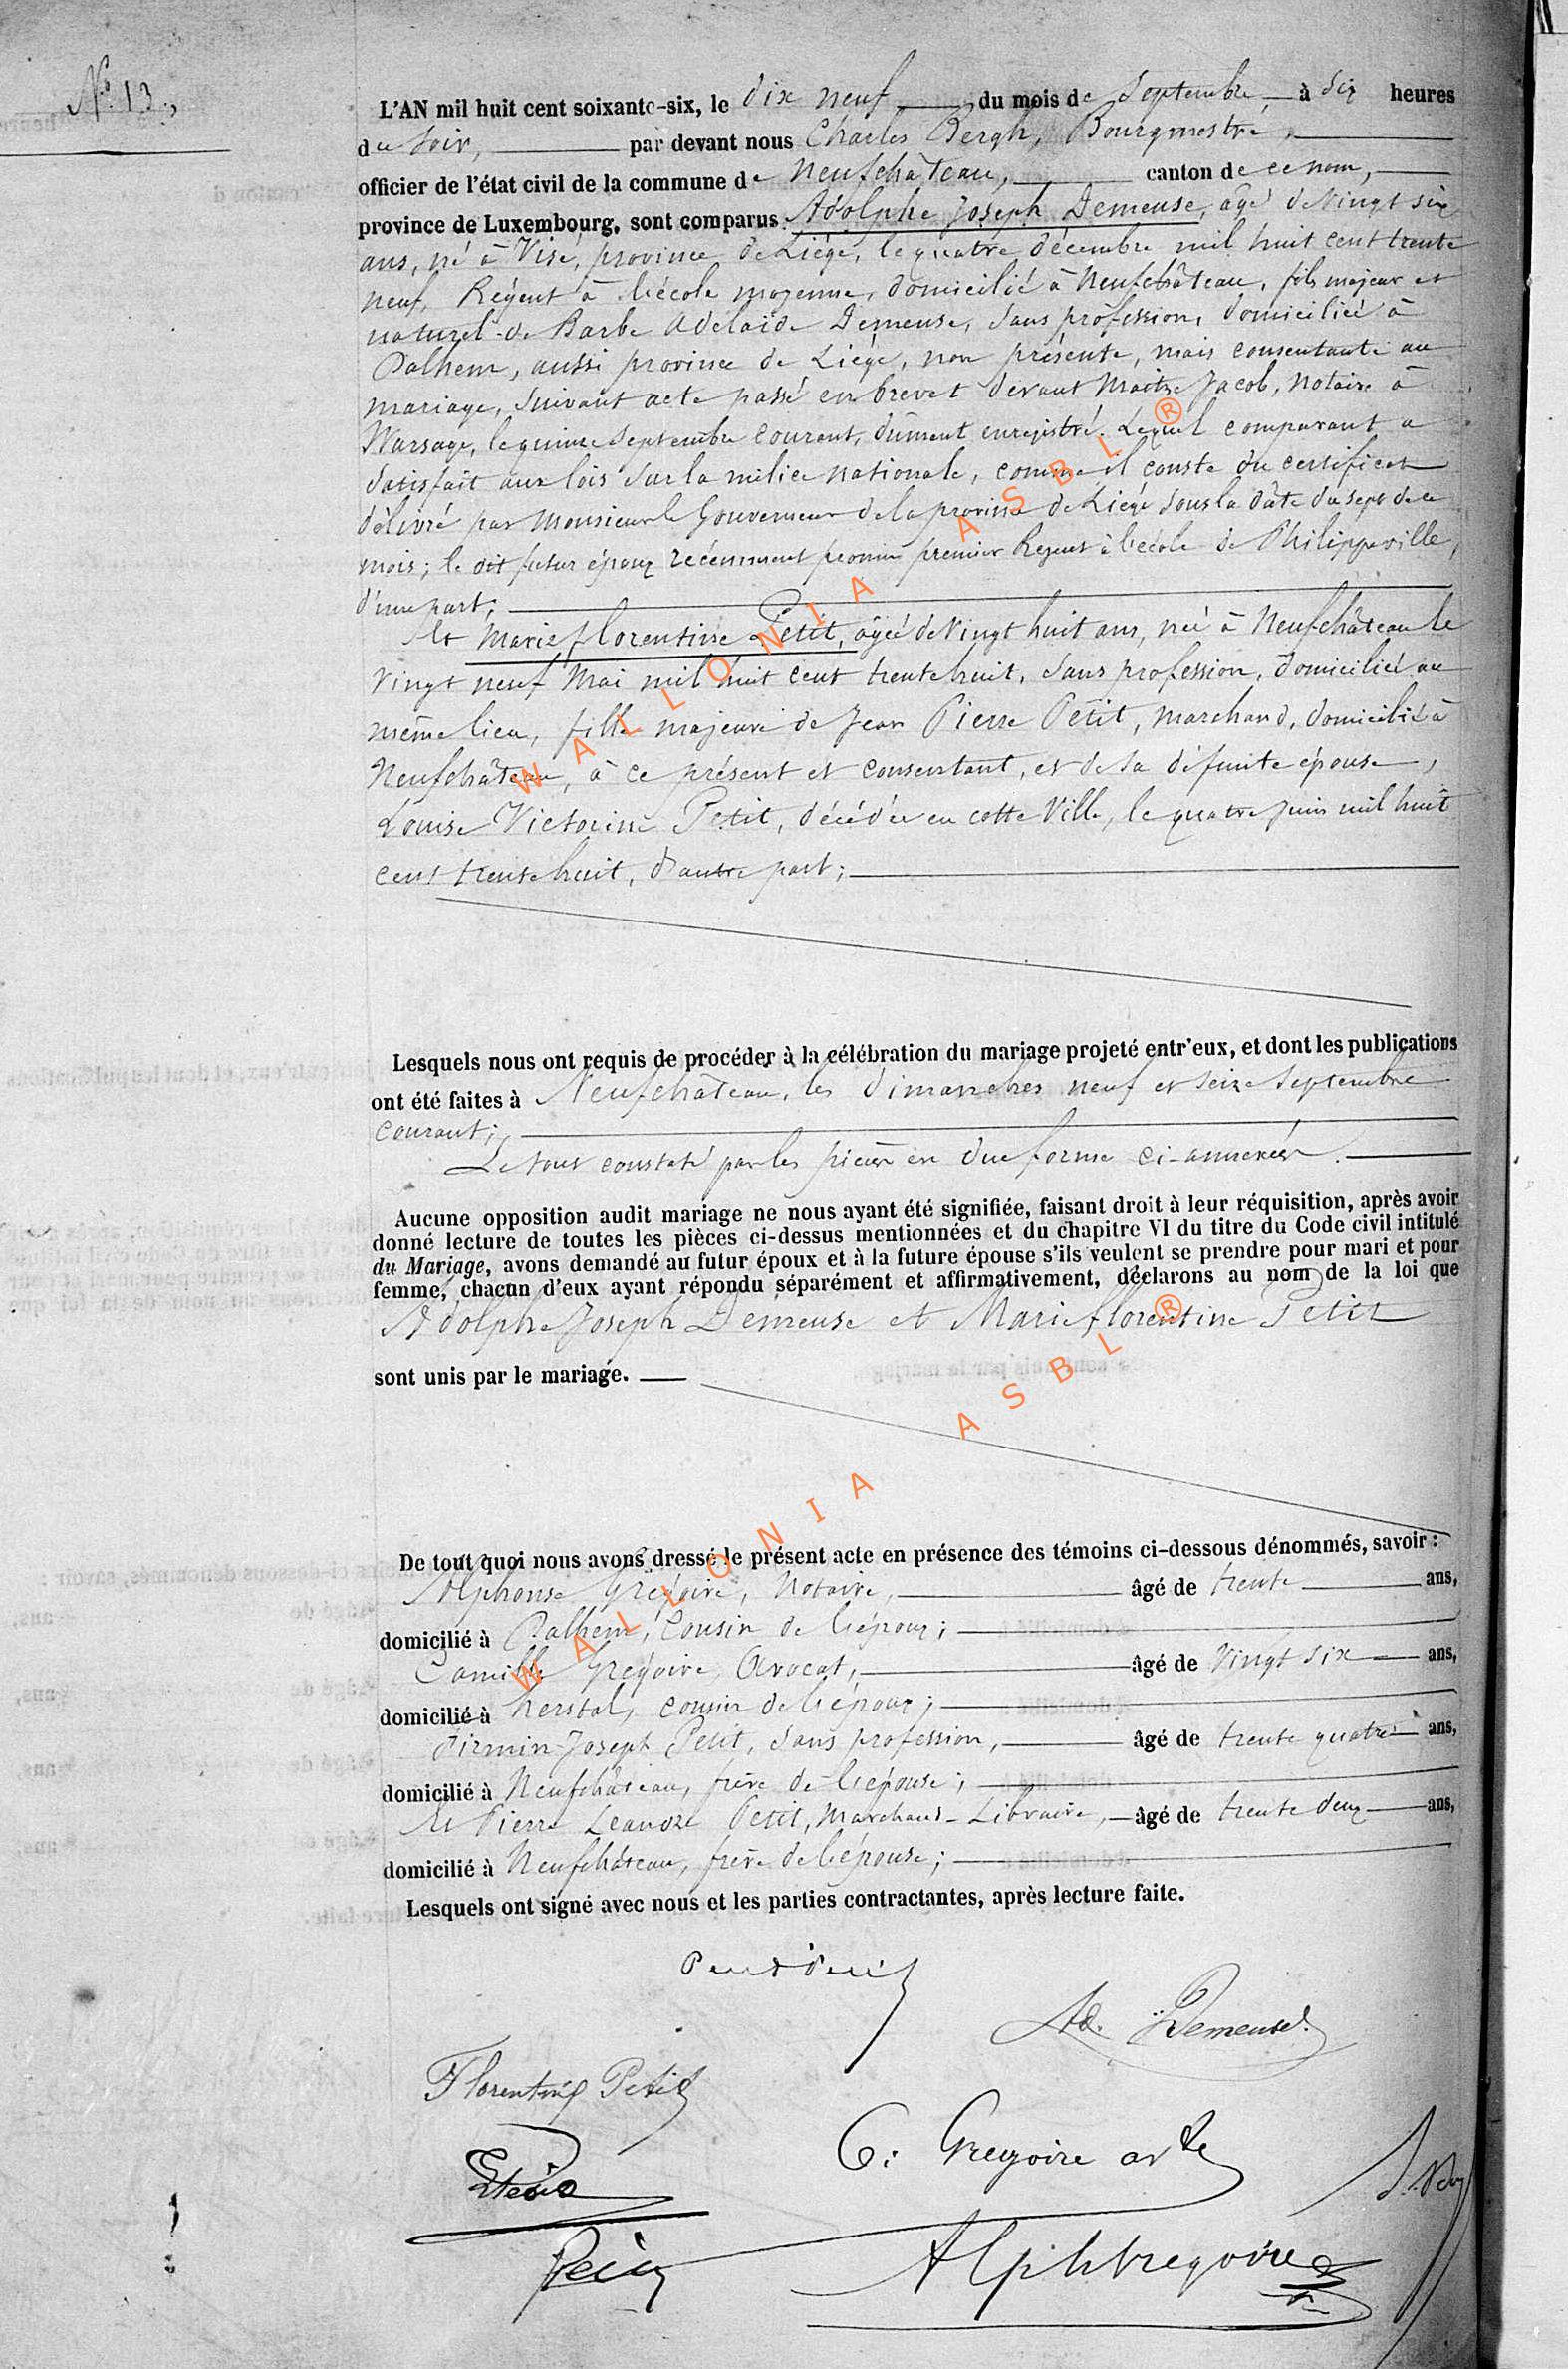 N° 13.,
L'AN mil huit cent soixante-six, le dix neuf du mois de Septembre, à Six heures
du Soir, par devant nous Charles Bergh, Bourgmestre,
officier de l'état civil de la commune de Neufchâteau, canton de ce nom,
province de Luxembourg, sont comparus: Adolphe Joseph Demeuse, âgé de Vingt six
ans, né à Visé, province de Liége, le quatre décembre mil huit cent trente
neuf, Régent à l'école moyenne, domicilié à Neufchâteau, fils majeur et
naturel de Barbe Adelaïde Demeuse, sans profession, domiciliée à
Dalhem, aussi province de Liége, non présente, mais consentante au
mariage, suivant acte passé en brevet devant Maître Jacob, Notaire à
Warsage, le quinze Septembre courant, dûment enregistré. Lequel comparant a
satisfait aux lois sur la milice nationale, comme il conste du certificat
délivré par Monsieur le Gouverneur de la province de Liége sous la date du sept de ce
mois; le dit futur époux récemment promu premier Régent à l'école de Philippeville,
d'une part;
Et Marie florentine Petit, âgée de Vingt huit ans, née à Neufchâteau le
vingt neuf Mai mil huit cent trente huit, sans profession, domiciliée au
même lieu, fille majeure de Jean Pierre Petit, marchand, domicilié à
Neufchâteau, à ce présent et consentant, et de sa défunte épouse,
Louise Victorine Petit, décédée en cette Ville, le quatre juin mil huit
cent trente huit, d'autre part;
Lesquels nous ont requis de procéder à la célébration du mariage projeté entr'eux, et dont les publications
ont été faites à Neufchâteau, les dimanches neuf et seize Septembre
courant;
Le tout constaté par les pièces en due forme ci-annexées.
Aucune opposition audit mariage ne nous ayant été signifiée, faisant droit à leur réquisition, après avoir
donné lecture de toutes les pièces ci-dessus mentionnées et du chapitre VI du titre du Code civil intitulé
du Mariage, avons demandé au futur époux et à la future épouse s'ils veulent se prendre pour mari et pour
femme, chacun d'eux ayant répondu séparément et affirmativement, déclarons au nom de la loi que
Adolphe Joseph Demeuse et Marie florentine Petit
sont unis par le mariage.
De tout quoi nous avons dressé le présent acte en présence des témoins ci-dessous dénommés, savoir:
Alphonse Grégoire, Notaire, âgé de trente ans,
domicilié à Dalhem, Cousin de l'époux;
Camille Grégoire, Avocat, âgé de Vingt six ans,
domicilié à herstal, cousin de l'époux;
Firmin Joseph Petit, sans profession, âgé de trente quatre ans,
domicilié à Neufchâteau, frère de l'épouse;
Et Pierre Leandre Petit, Marchand-Libraire, âgé de trente deux ans,
domicilié à Neufchâteau, frère de l'épouse;
Lesquels ont signé avec nous et les parties contractantes, après lecture faite.
Ad. Demeuse
Florentine Petit
C: Gregoire avte
Petit
Alph Gregoire
WALLONIA ASBL ®
WALLONIA ASBL ®